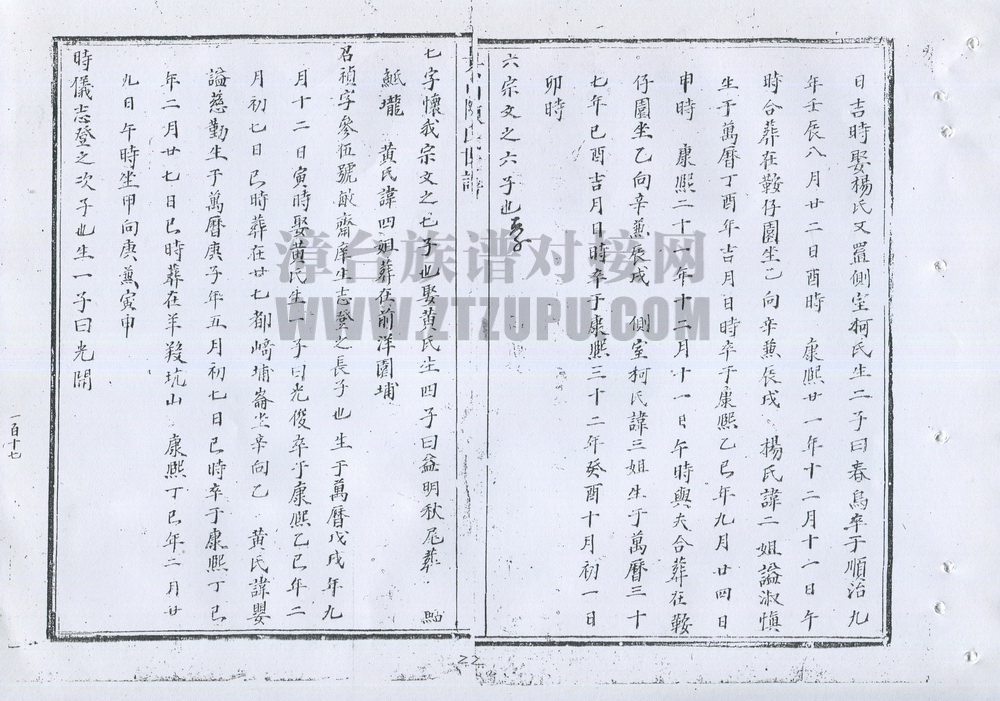 日吉時娶楊氏又置側室柯氏生二子曰春鳥卒于順治九
年壬辰八月廿二日酉時 康熙廿一年十二月十一日午
時合葬在鞍仔園坐乙向辛兼辰戌 楊氏諱二姐謚淑慎
生于萬曆丁酉年吉月日時卒于康熙乙巳年九月廿四日
申時 康熙二十一年十二月十一日午時與夫合葬在鞍
仔園坐乙向辛兼辰戌 側室柯氏諱三姐生于萬曆三十
七年己酉吉月日時卒于康熙三十二年癸酉十月初一日
卯時
六宗文之六子也
陳氏世譜
七字懷我宗文之七子也娶黃氏生四子曰益明秋尾葬
黃氏諱四姐葬在前洋園埔
君禎字參伍號敏齋庠生志登之長子也生于萬曆戊戌年九
月十二日寅時娶黃氏生一子曰光俊卒于康熙乙巳年二
月初七日巳時葬在廿七都崎埔崙坐辛向乙 黃氏諱嬰
謚慈勤生于萬曆庚子年五月初七日巳時卒于康熙丁巳
年二月廿七日巳時葬在羊羖坑山 康熙丁巳年二月廿
九日午時坐甲向庚兼寅申
時儀志登之次子也生一子曰光閗
一百十七
22
漳台族谱对接网
WWW.ZTZUPU.COM